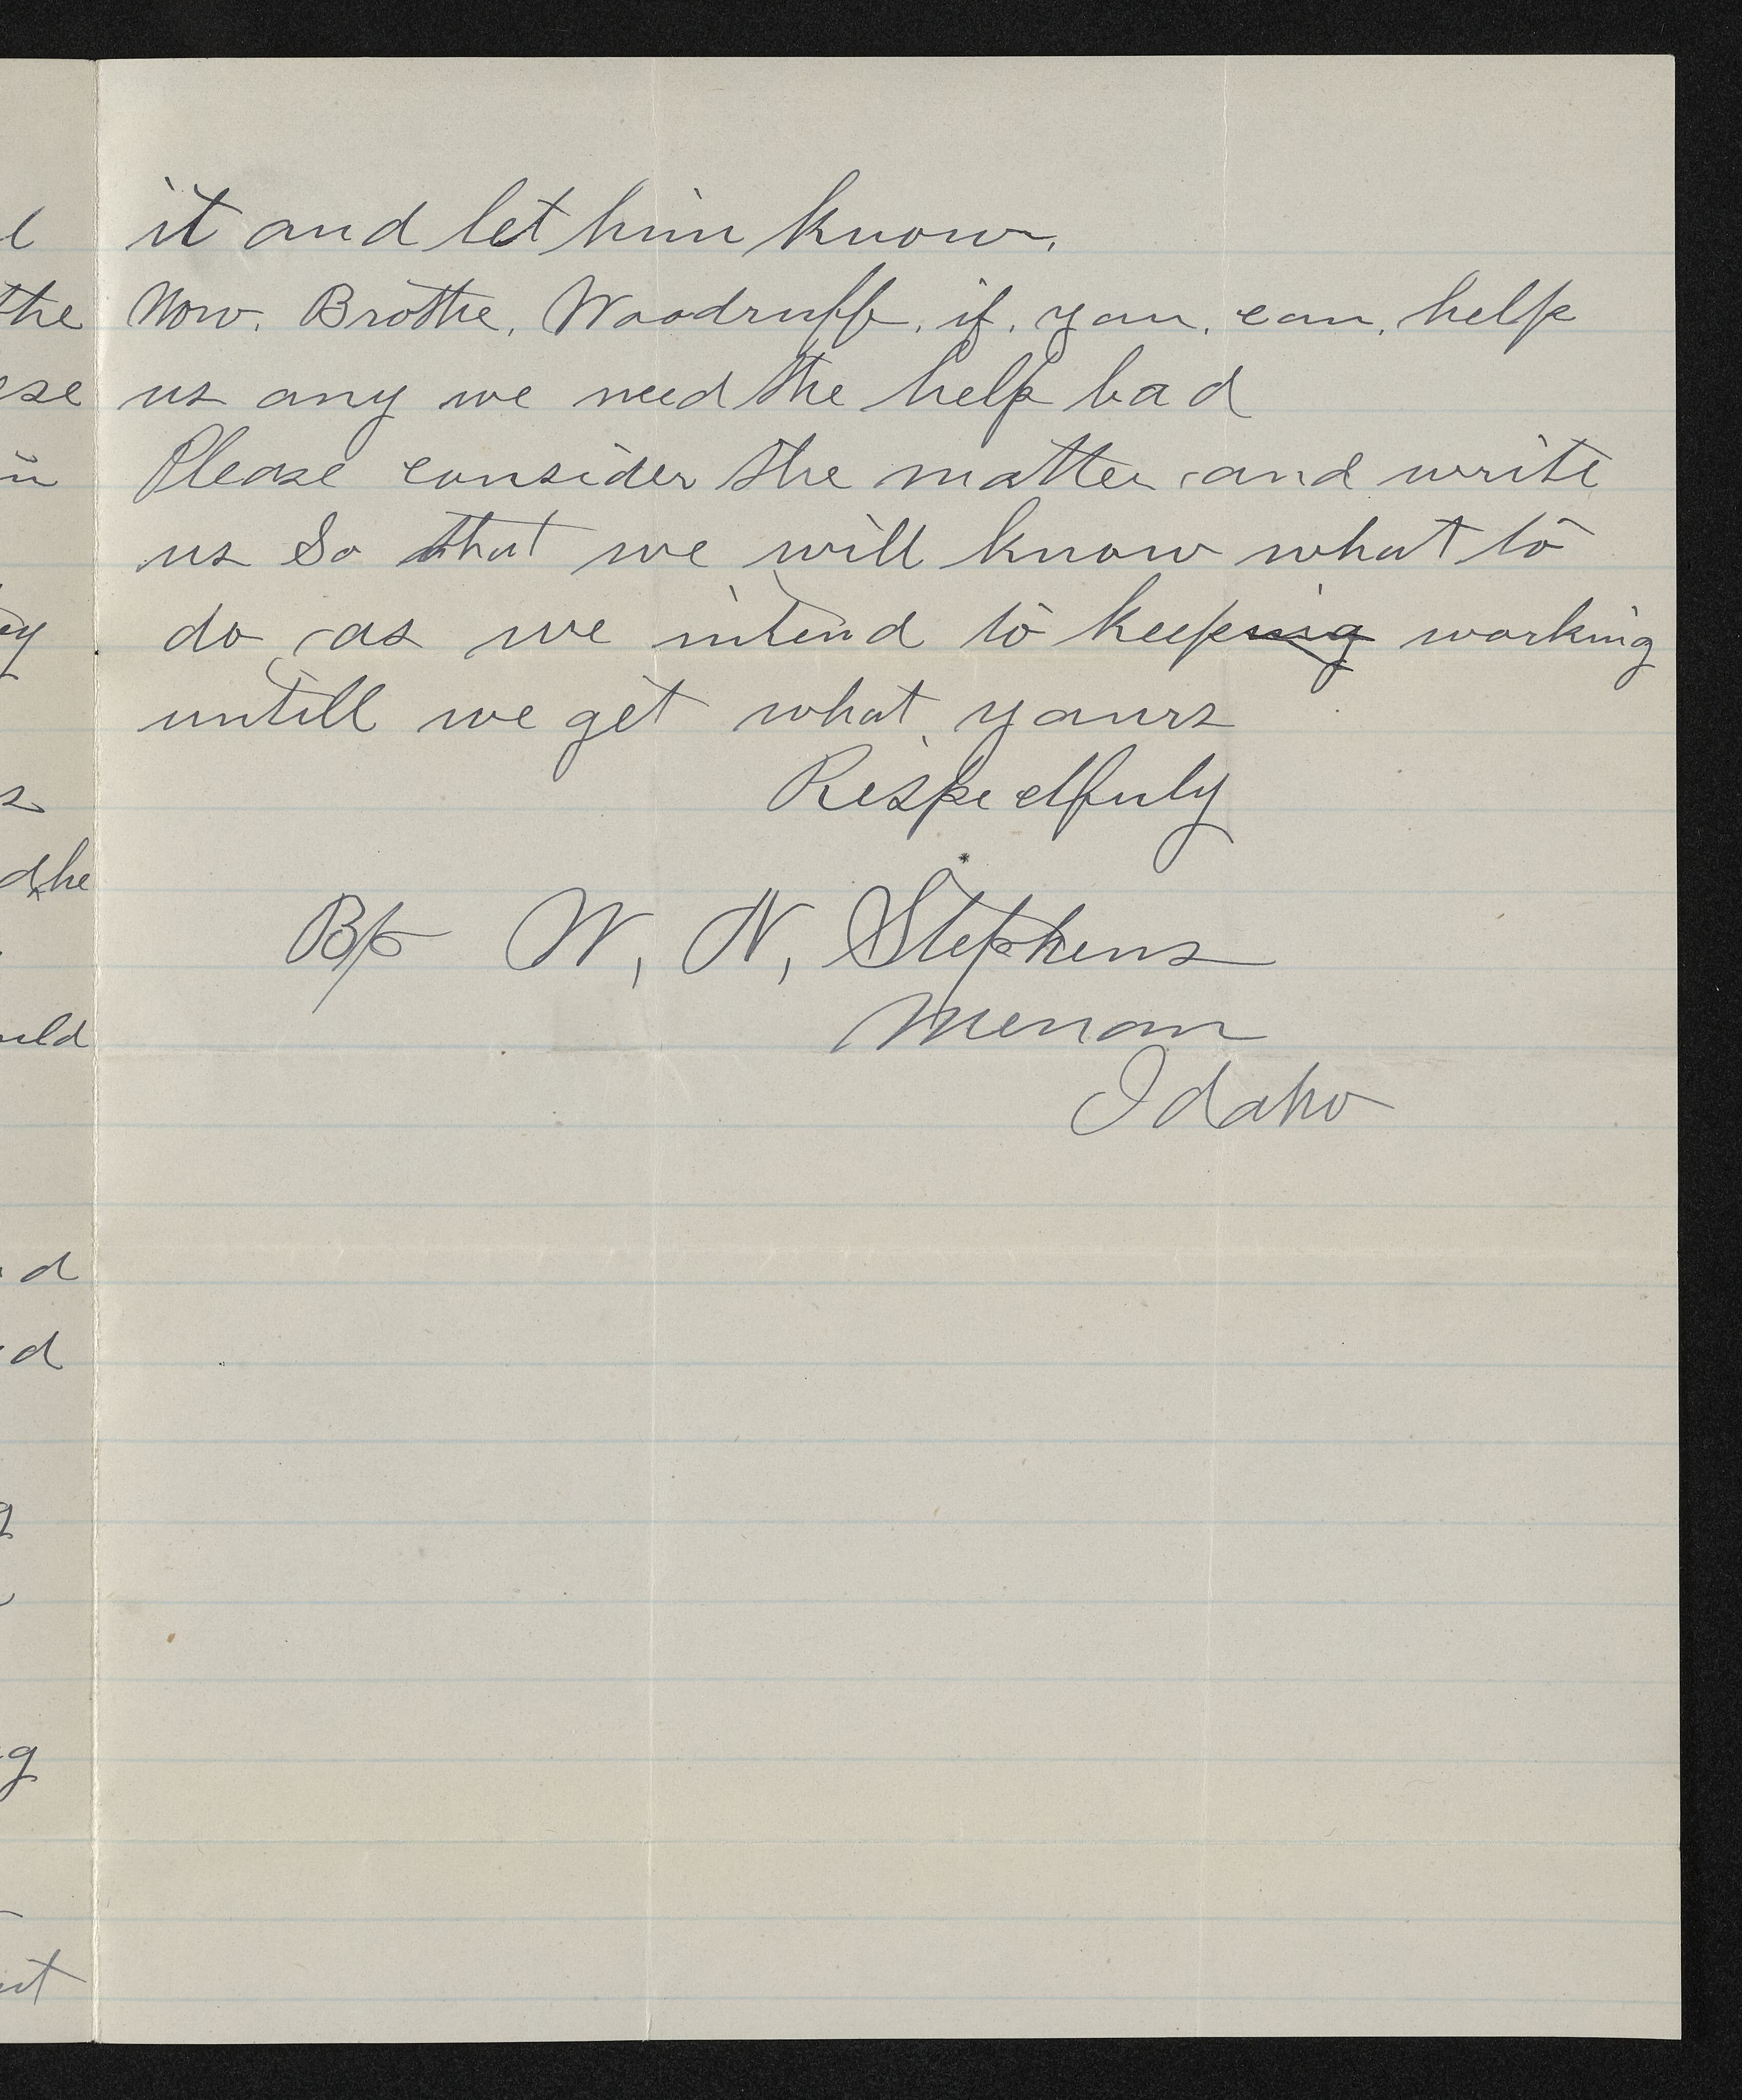 it and let him know.
Now. Brothe. Woodruff. if. you. can. help
us any we need the help bad
Please consider the matter and write
us So that we will know what to
do as we intend to keeping working
untill we get what yours
Respectfuly
Bp W, N, Stephens
Menan
Idaho
the
ese
in
ey
s
d he
uld
d
d
g
ng